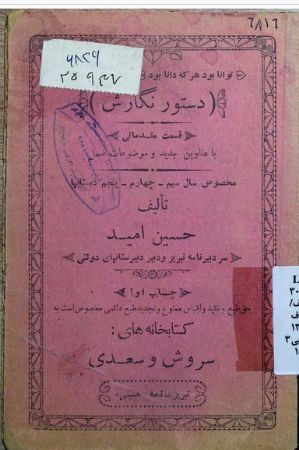 ٦٨١٦
٦٨٢٦
توانا بود هر که دانا بود
(دستور نگارش)
قسمت مقدماتی
با عناوین جدید و موضوعات
مخصوص سال سیم - چهارم - پنجم دبستان
تألیف
حسین امید
سردبیر نامه تبریز و دبیر دبیرستانهای دولتی
چاپ اول
حق طبع و تقلید و اقتباس ممنوع و تجدید طبع دائمی مخصوص است به
کتابخانه های:
سروش و سعدی
تبریز مطبعه حسینی